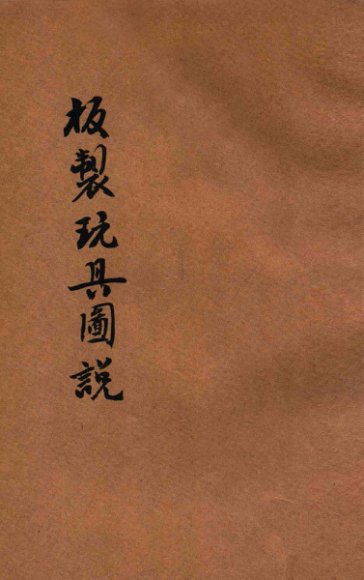 板製玩具圖説